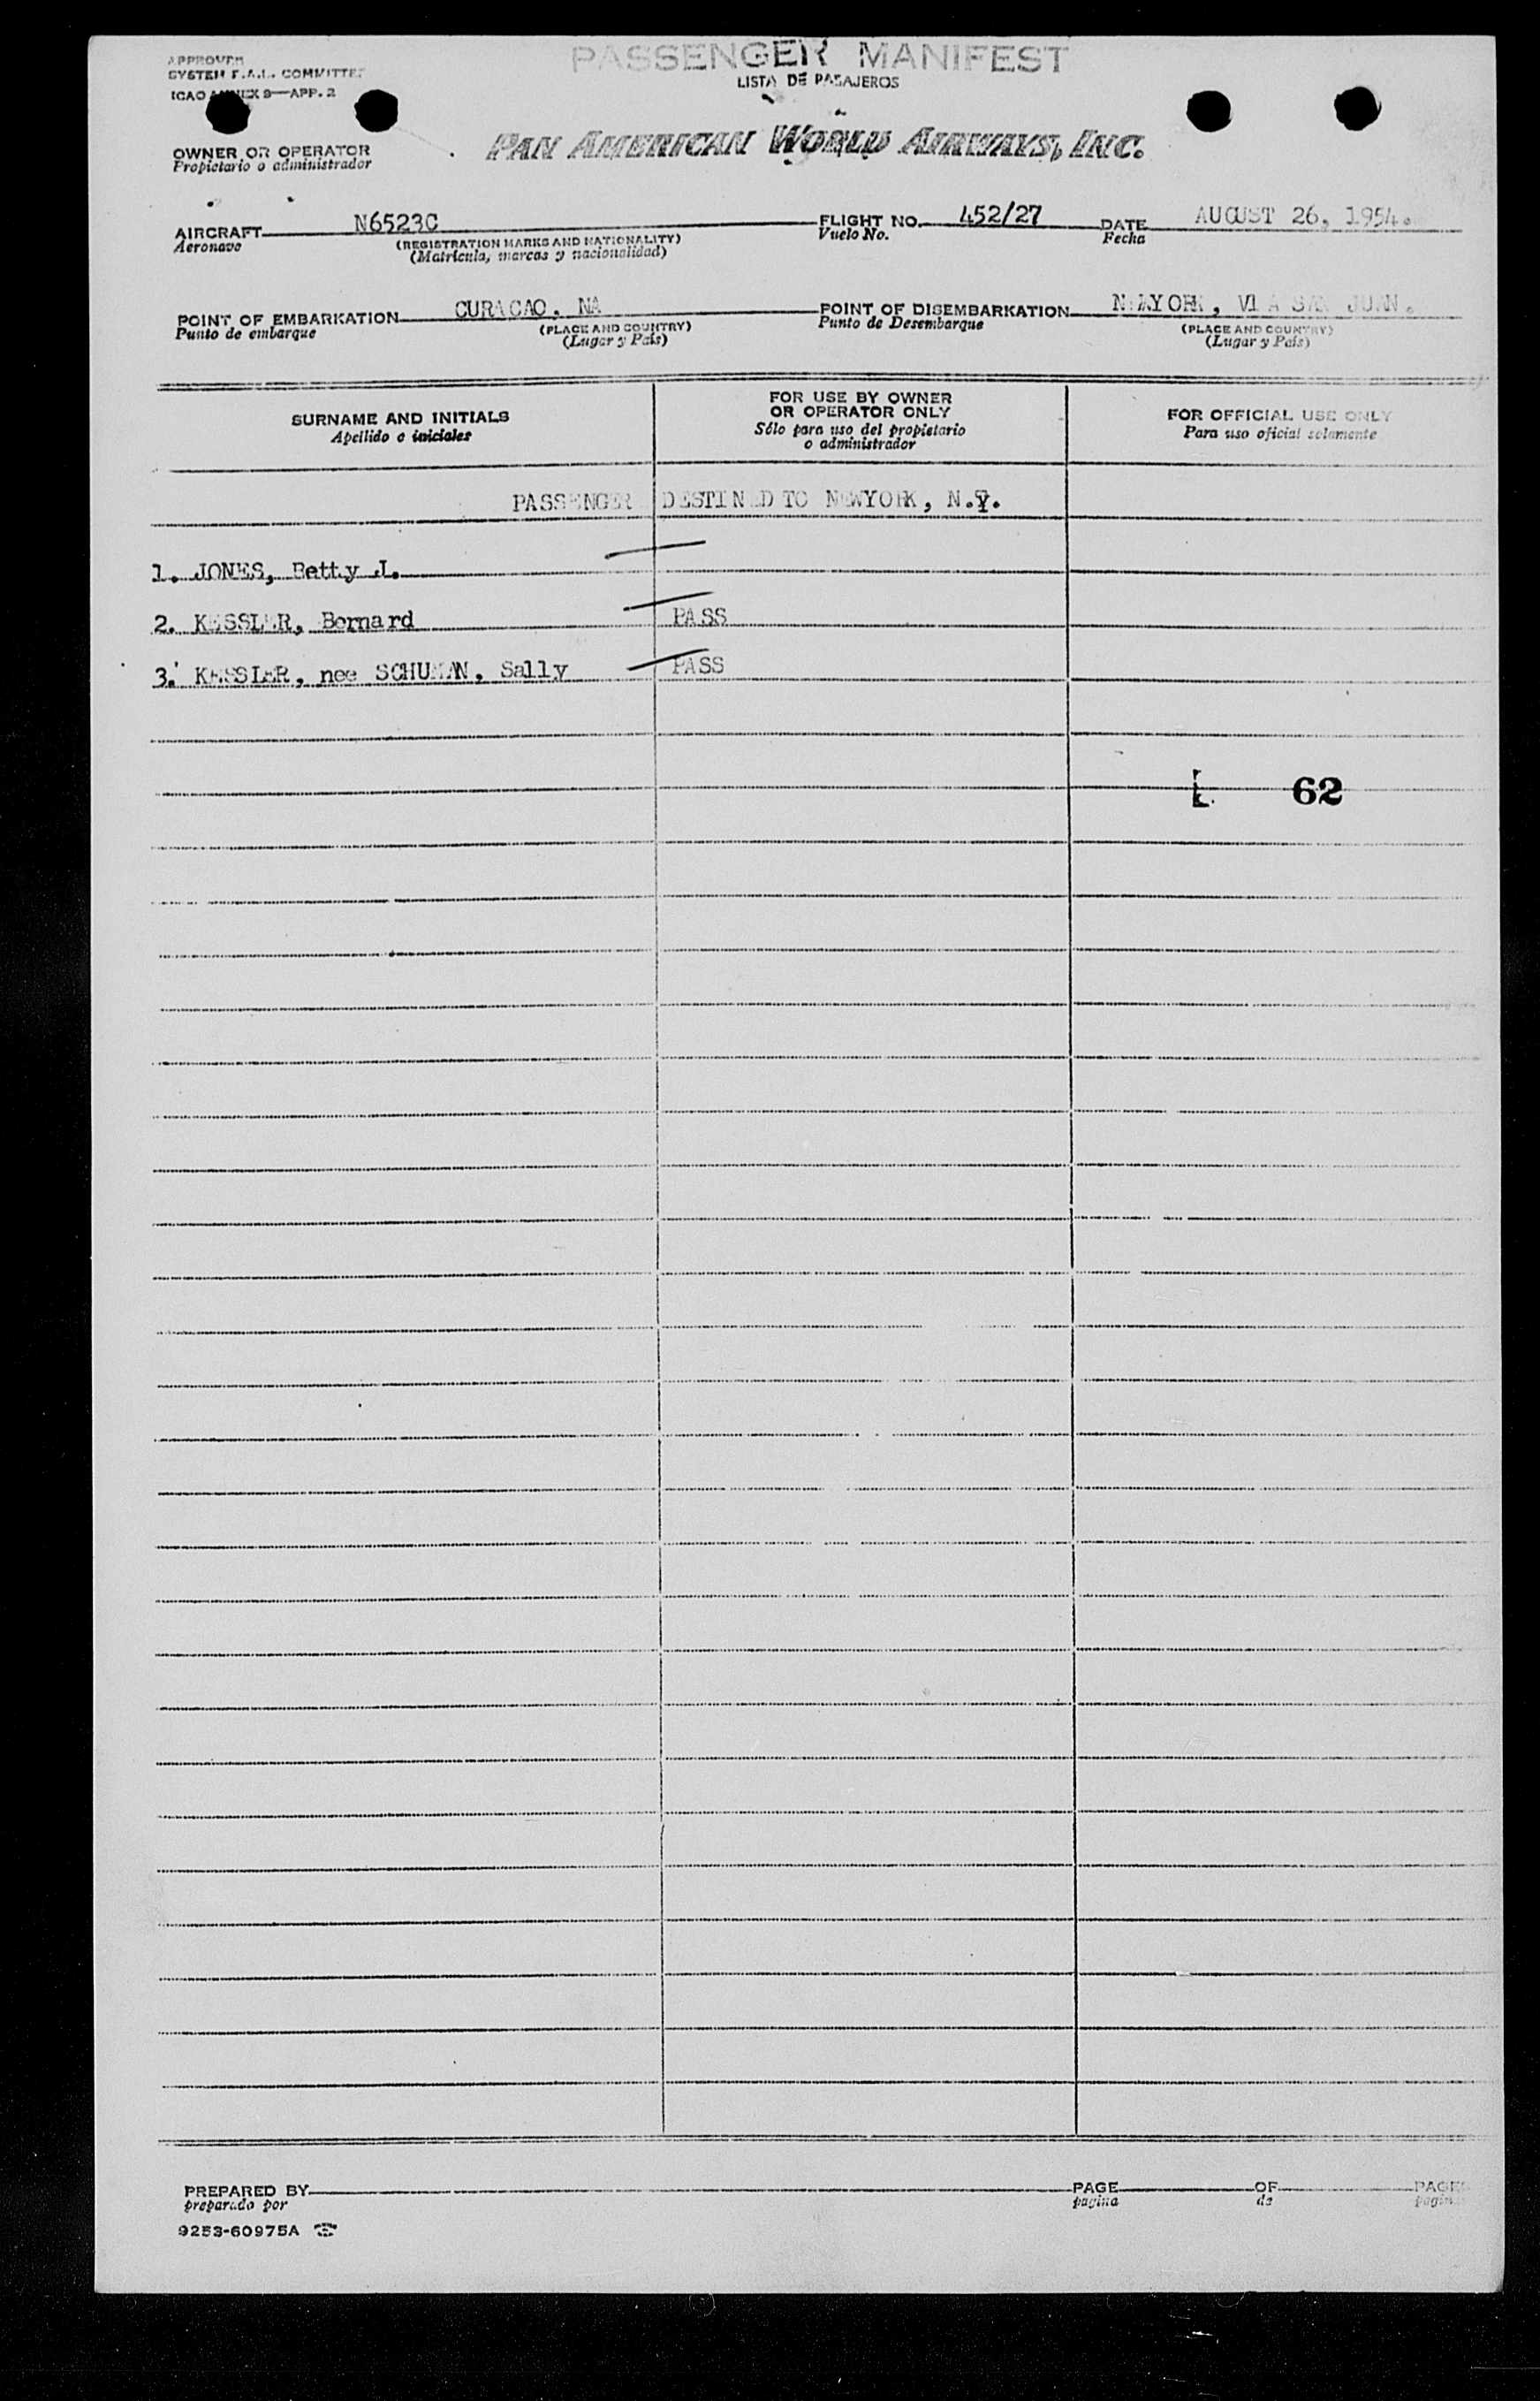 APPROVED
SYSTEM F.A.L. COMMITTEE
ICAO ANNEX 9—APP. 2
PASSENGER MANIFEST
LISTA DE PASAJEROS
OWNER OR OPERATOR
Propietario o administrador
PAN AMERICAN WORLD AIRWAYS, INC.
AIRCRAFT N6523C FLIGHT NO. 452/27 DATE AUGUST 26, 1954.
Aeronave (REGISTRATION MARKS AND NATIONALITY) Vuelo No. Fecha
(Matrícula, marcas y nacionalidad)
POINT OF EMBARKATION CURACAO, NA POINT OF DISEMBARKATION NEWYORK, VIA SAN JUAN.
Punto de embarque (PLACE AND COUNTRY) Punto de Desembarque (PLACE AND COUNTRY)
(Lugar y País) (Lugar y País)
SURNAME AND INITIALS FOR USE BY OWNER OR OPERATOR ONLY FOR OFFICIAL USE ONLY
Apellido e iniciales Sólo para uso del propietario o administrador Para uso oficial solamente
PASSENGER DESTINED TO NEWYORK, N.Y.
1. JONES, Betty J.
2. KESSLER, Bernard PASS
3. KESSLER, nee SCHUMAN, Sally PASS
62
PREPARED BY PAGE OF PAGES
preparado por pagina de paginas
9253-60975A